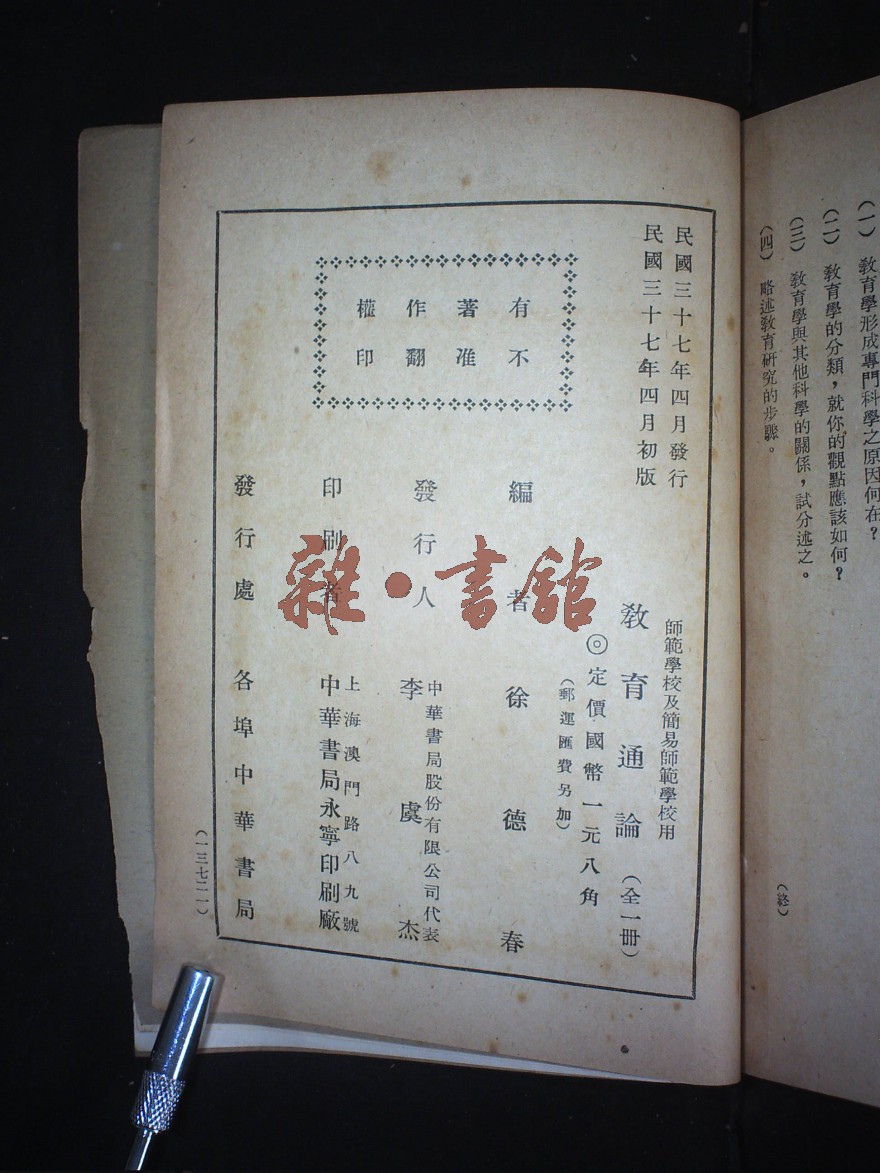 (一) 教育學形成專門科學之原因何在?
(二) 教育學的分類,就你的觀點應該如何?
(三) 教育學與其他科學的關係,試分述之。
(四) 略述教育研究的步驟。
(終)
民國三十七年四月發行
民國三十七年四月初版
有著作權
不准翻印
師範學校及簡易師範學校用
教育通論(全一冊)
◎定價國幣一元八角
(郵運匯費另加)
編者 徐德春
發行人 中華書局股份有限公司代表
李虞杰
印刷者 上海澳門路八九號
中華書局永寧印刷廠
發行處 各埠中華書局
(一三七二一)
雜·書館